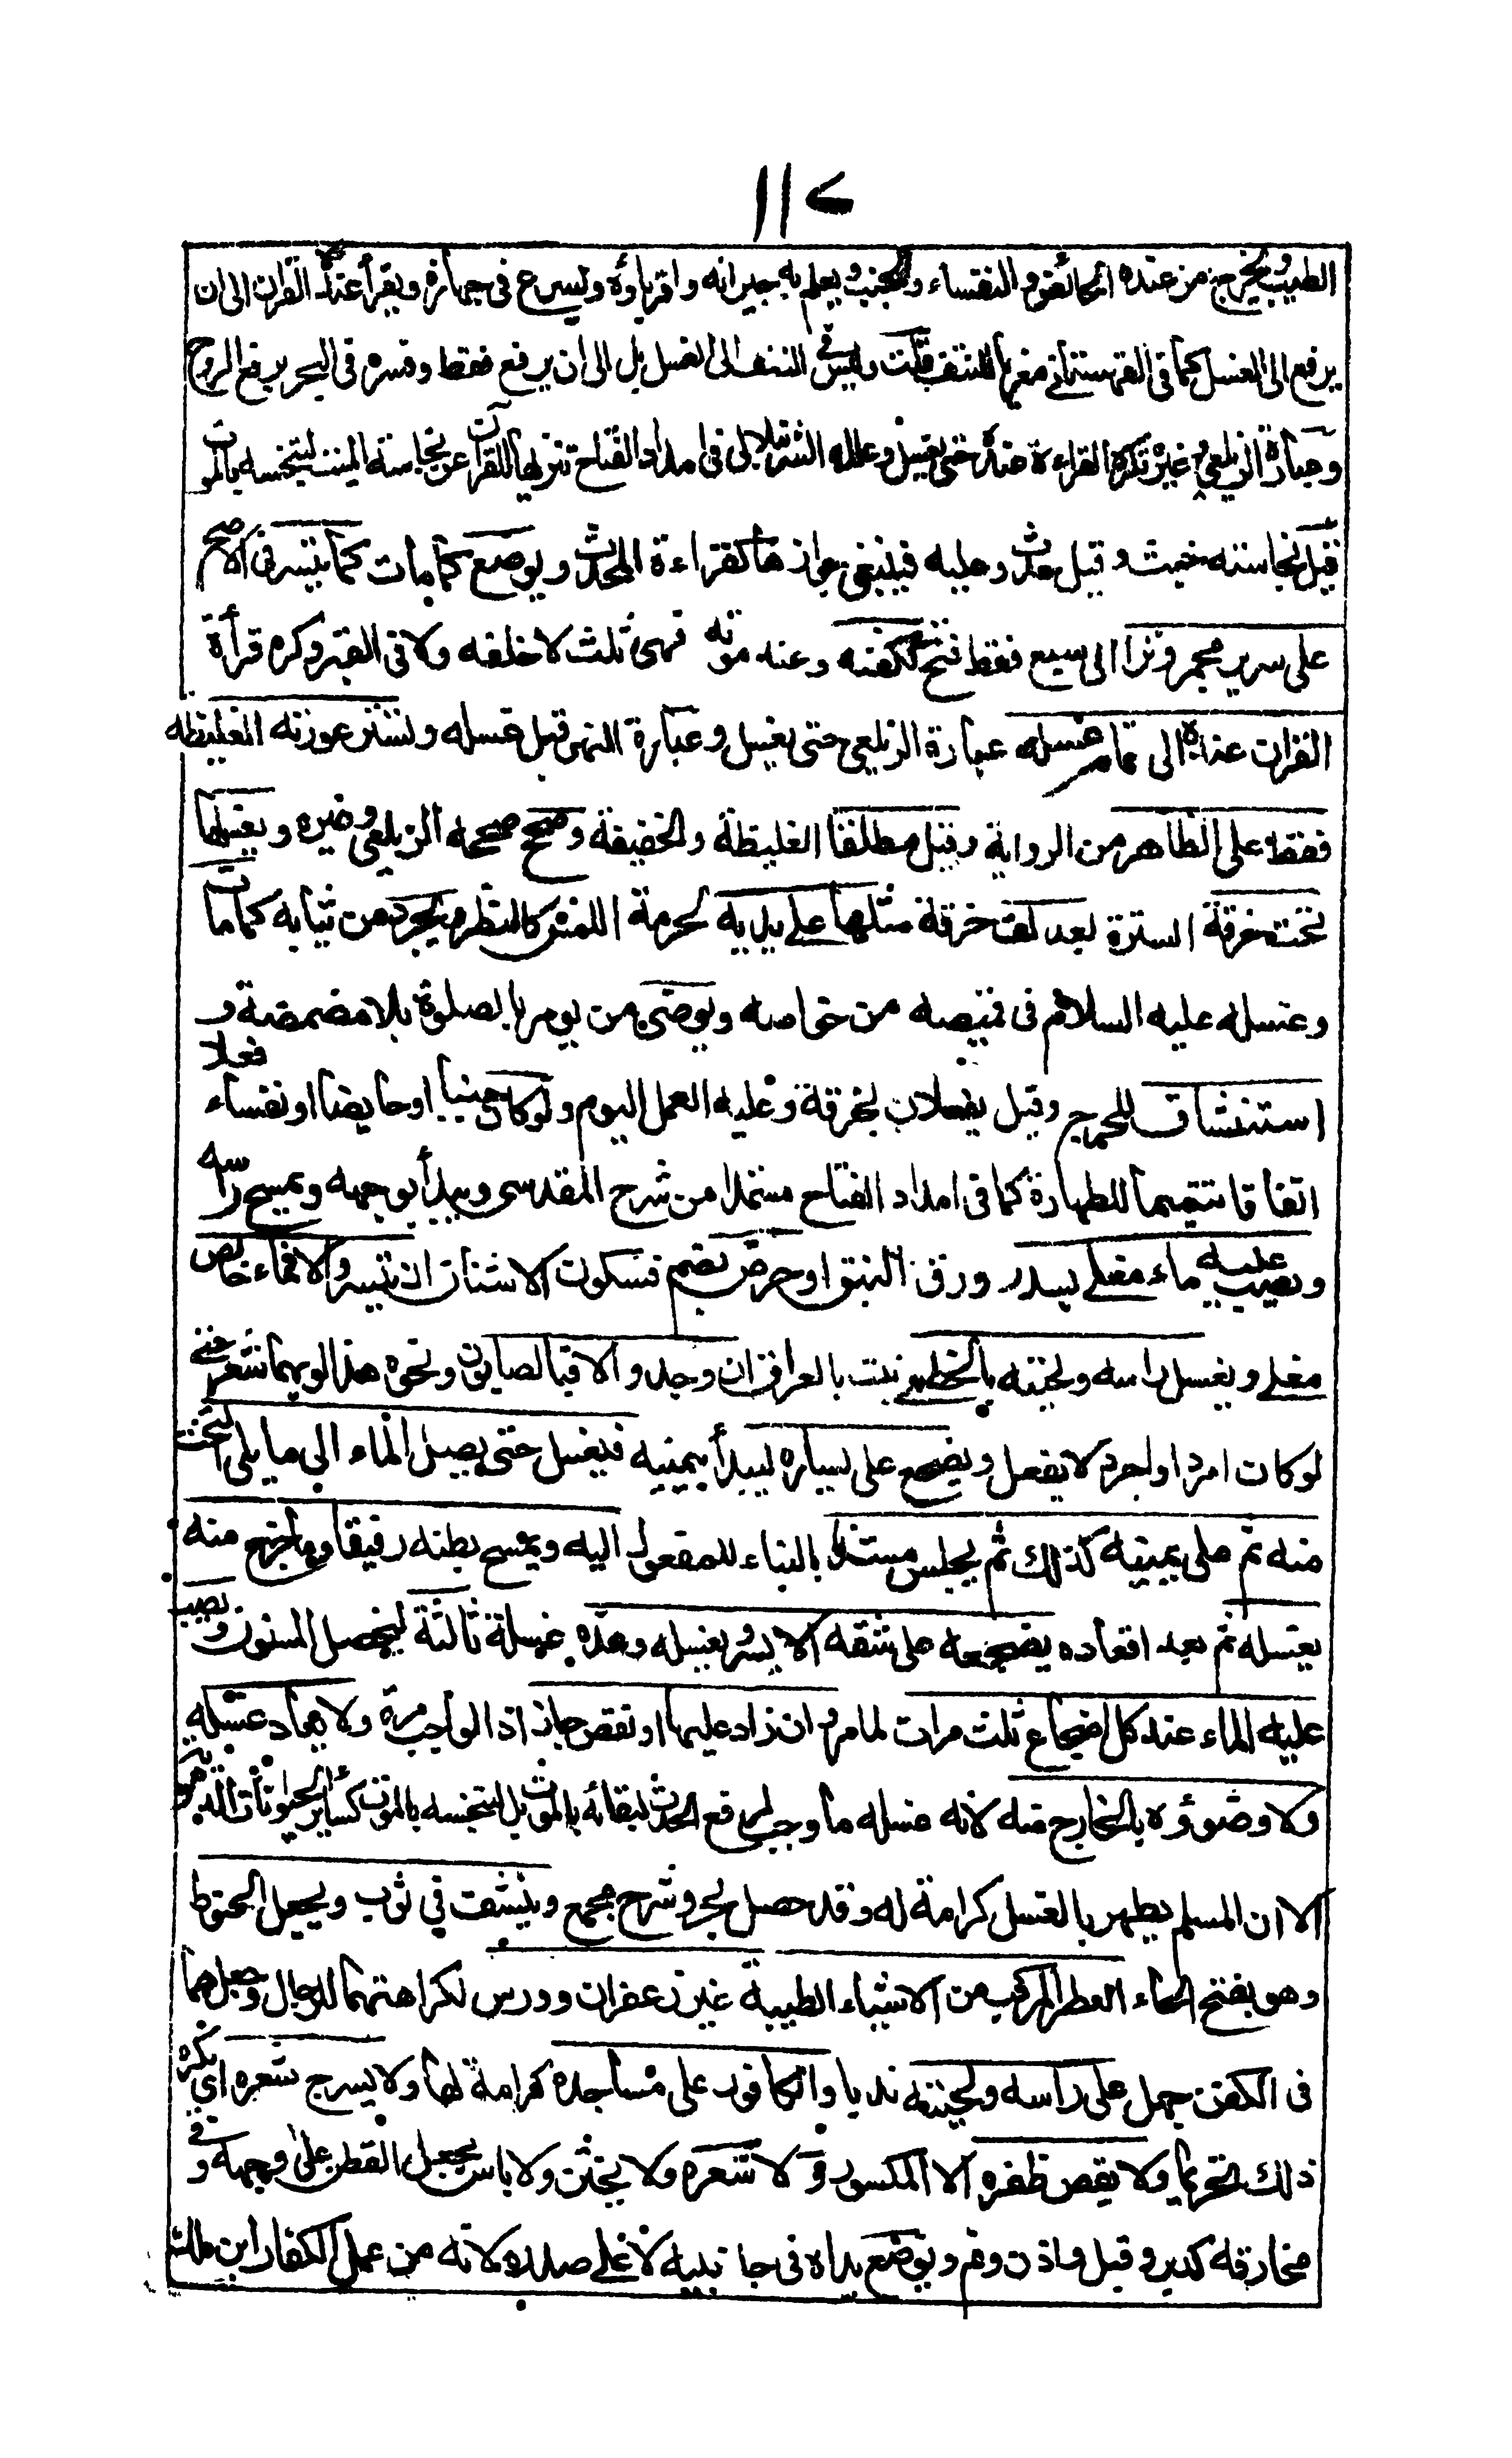 ١١٢
الطيب ويخرج من عنده الحائض والنفساء والجنب ويعلم به جيرانه واقرباؤه ويسرع فى جهازه ويقرأ عنده القرآن الى ان
يرفع الى الغسل كما فى القهستانى معزيا للنتف قلت وليس فى النتف الى الغسل بل الى ان يرفع فقط وفسره فى البحر برفع الروح
وعبارة الزيلعى وغيره تكره القراءة عنده حتى يغسل وعلله الشرنبلالى فى امداد الفتاح تنزيها للقرآن عن نجاسة الميت لتنجسه بالموت
قيل نجاسته خبث وقيل حدث وعليه فينبغى جوازها كقراءة المحدث ويوضع كما مات كما تيسر فى الاصح
على سرير مجمر وترا الى سبع فقط فتح ككفنه وعند موته فهى ثلث لا خلفه ولا فى القبر وكره قرأة
القران عنده الى تمام غسله عبارة الزيلعى حتى يغسل وعبارة النهر قبل غسله وتستر عورته الغليظة
فقط على الظاهر من الرواية وقيل مطلقا الغليظة والخفيفة وصحح صححه الزيلعى وغيره ويغسلها
تحت خرقة السترة بعد لف خرقة مثلها على يديه لحرمة اللمس كالنظر ويجرد من ثيابه كما مات
وغسله عليه السلام فى قميصه من خواصه ويوضى من يومر بالصلوة بلا مضمضة و
استنشاق للحرج وقيل يفعلان بخرقة وعليه العمل اليوم ولو كان جنبا او حايضا او نفساء فعلا
اتفاقا تتميما للطهارة كما فى امداد الفتاح مستمدا من شرح المقدسى ويبدأ بوجهه ويمسح رأسه
ويصب عليه ماء مغلى بسدر ورق النبق او حرض بضم فسكون الاشنان ان تيسر والا فماء خالص
مغلى ويغسل راسه ولحيته بالخطمى نبت بالعراق ان وجد والا فبالصابون ونحوه هذا لو بهما شعر حتى
لو كان امرد او اجرد لا يفعل ويضجع على يساره ليبدأ بيمينه فيغسل حتى يصل الماء الى ما يلى التخت
منه ثم على يمينه كذلك ثم يجلس مستندا بالبناء للمفعول اليه ويمسح بطنه رفيقا وما خرج منه
يغسله ثم بعد اقعاده يضجعه على شقه الايسر ويغسله وهذه غسلة ثالثة ليحصل المسنون ويصب
عليه الماء عند كل اضجاع ثلث مرات لما مر وان زاد عليها او نقص جاز اذ الواجب مرة ولا يعاد غسله
ولا وضوؤه بالخارج منه لانه غسله ما وجب لرفع الحدث لبقائه بالموت بل لتنجسه بالموت كسائر الحيوانات الدموية
الا ان المسلم يطهر بالغسل كرامة له وقد حصل بحر وشرح مجمع وينشف فى ثوب ويجعل الحنوط
وهو بفتح الحاء العطر المركب من الاشياء الطيبة غير زعفران وورس لكراهتهما للرجال وجعلهما
فى الكفن جهل على راسه ولحيته ندبا والكافور على مساجده كرامة لها ولا يسرج شعره اى يكره
ذلك تحريما ولا يقص ظفره الا المكسور ولا شعره ولا يختن ولا باس بجعل القطن على وجهه وفى
مخارقه كدبر وقبل واذن وفم ويوضع يداه فى جانبيه لا على صدره لانه من عمل الكفار ابن ملك